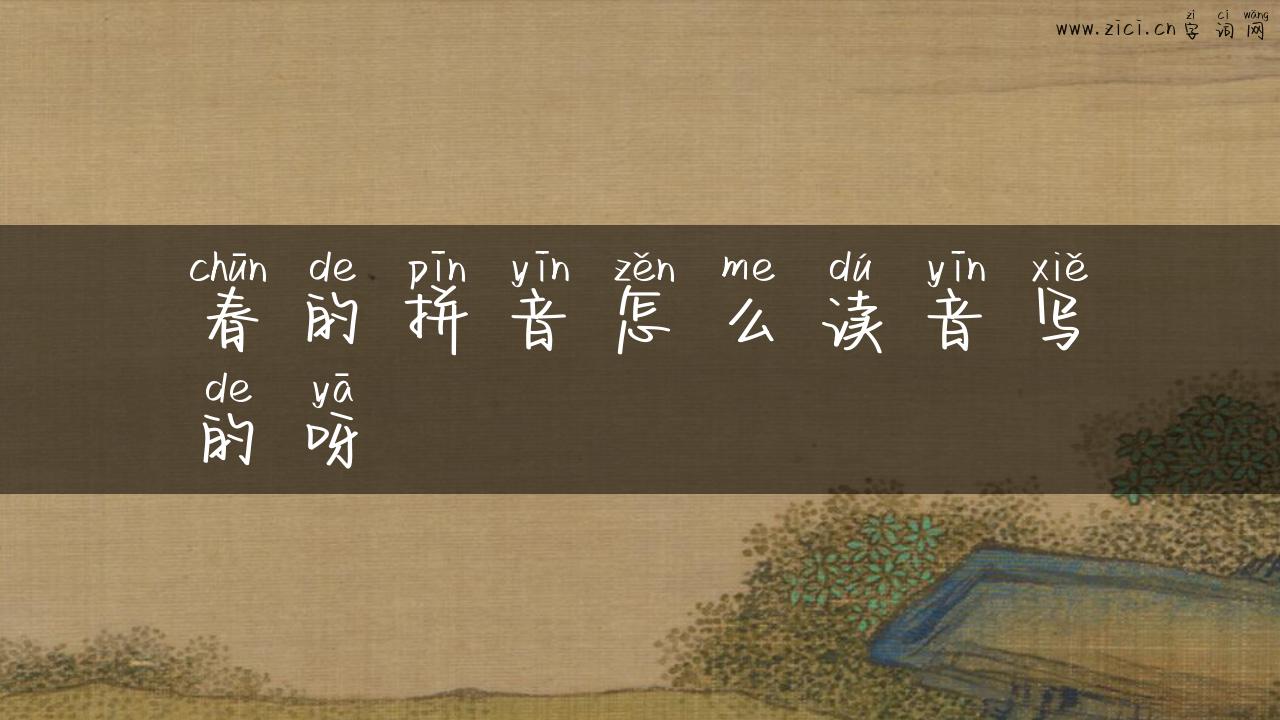 zì cí wǎng
www.zici.cn 字词网
chūn de pīn yīn zěn me dú yīn xiě
春的拼音怎么读音写
de yā
的呀